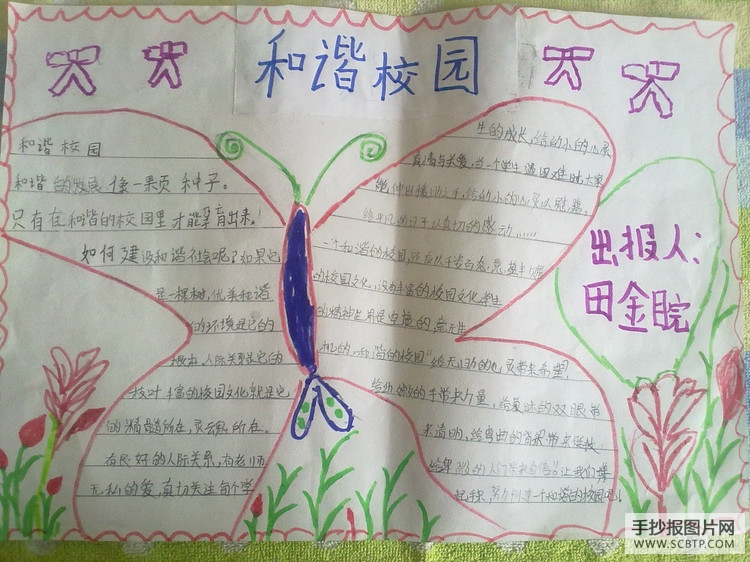 和谐校园
和谐校园
和谐的发展像一果页种子。
只有在和谐的校园里才能孕育出来！
如何建设和谐社会呢？如果它
是一棵树，优美和谐
的环境是它的
人际关系是它的
枝叶丰富的校园文化就是它
的精髓所在，灵魂所在。
有良好的人际关系，有老师
无私的爱，真切关注每个学
生的成长，给幼小的心灵
真情与关爱，当一个学生遇困难时，大家
伸出援助之手，给幼小的心灵以慰藉。
给平凡的日子以真切的感动……
一个和谐的校园
的校园文化，没有丰富的校园文化，学生
的精神世界是空虚的，毫无生
机的。和谐的校园给无助的心灵带来希望，
给幼嫩的手带来力量，给迷的双眼带
来清明，给弯曲的脊梁带来
让我们携
起手来，努力创建一个和谐的校园吧！
出报人：
田金皖
手抄报图片网
WWW.SCBTP.COM